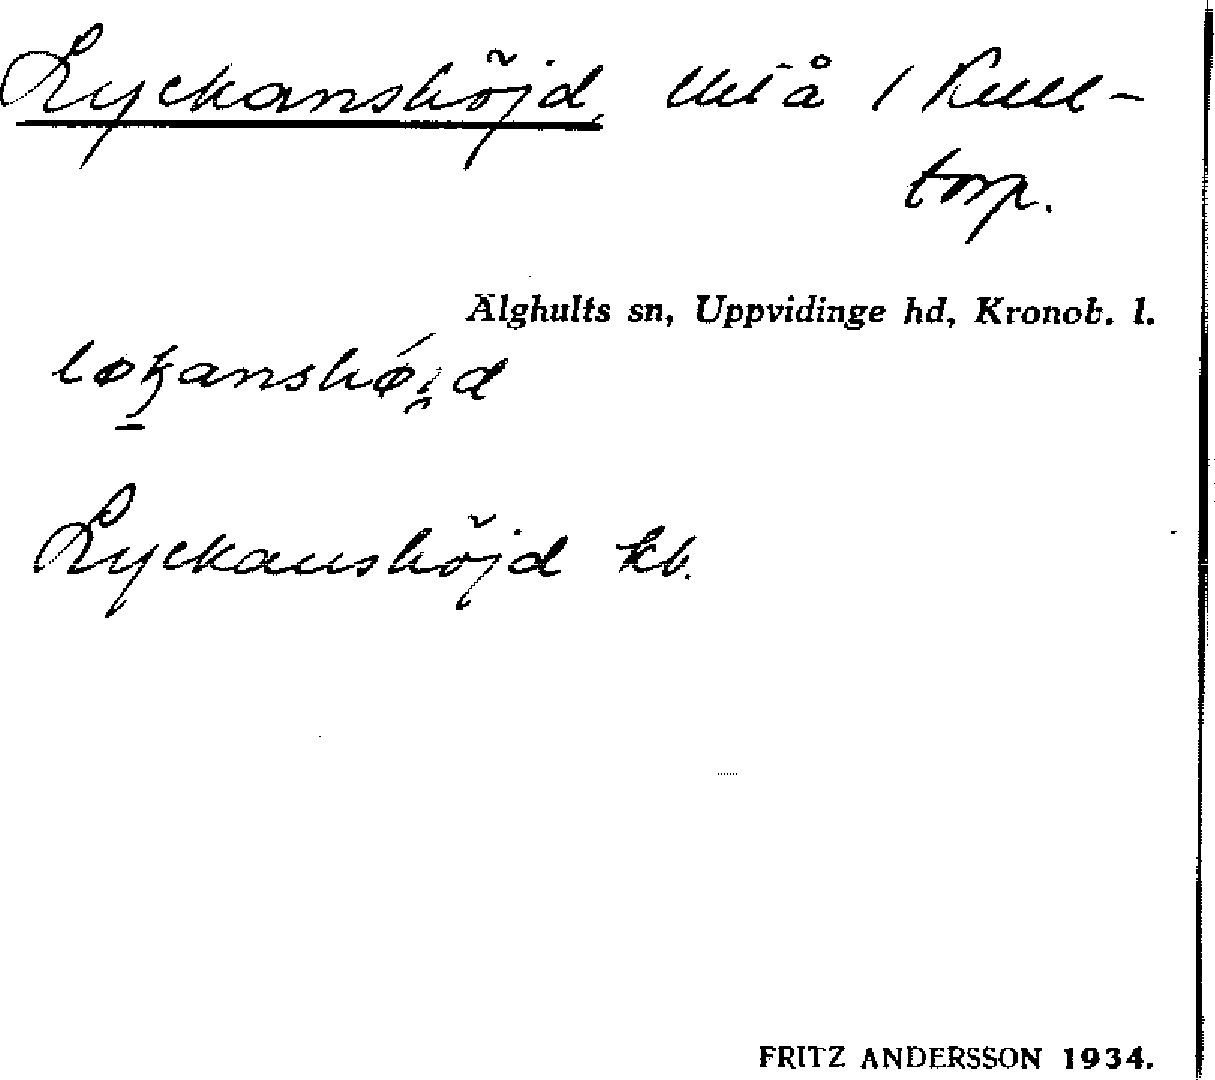 Lyckanshöjd, utl å 1 Kull-
torp.
Älghults sn, Uppvidinge hd, Kronob. l.
løkanshǿi̯d
Lyckanshöjd kb.
FRITZ ANDERSSON 1934.